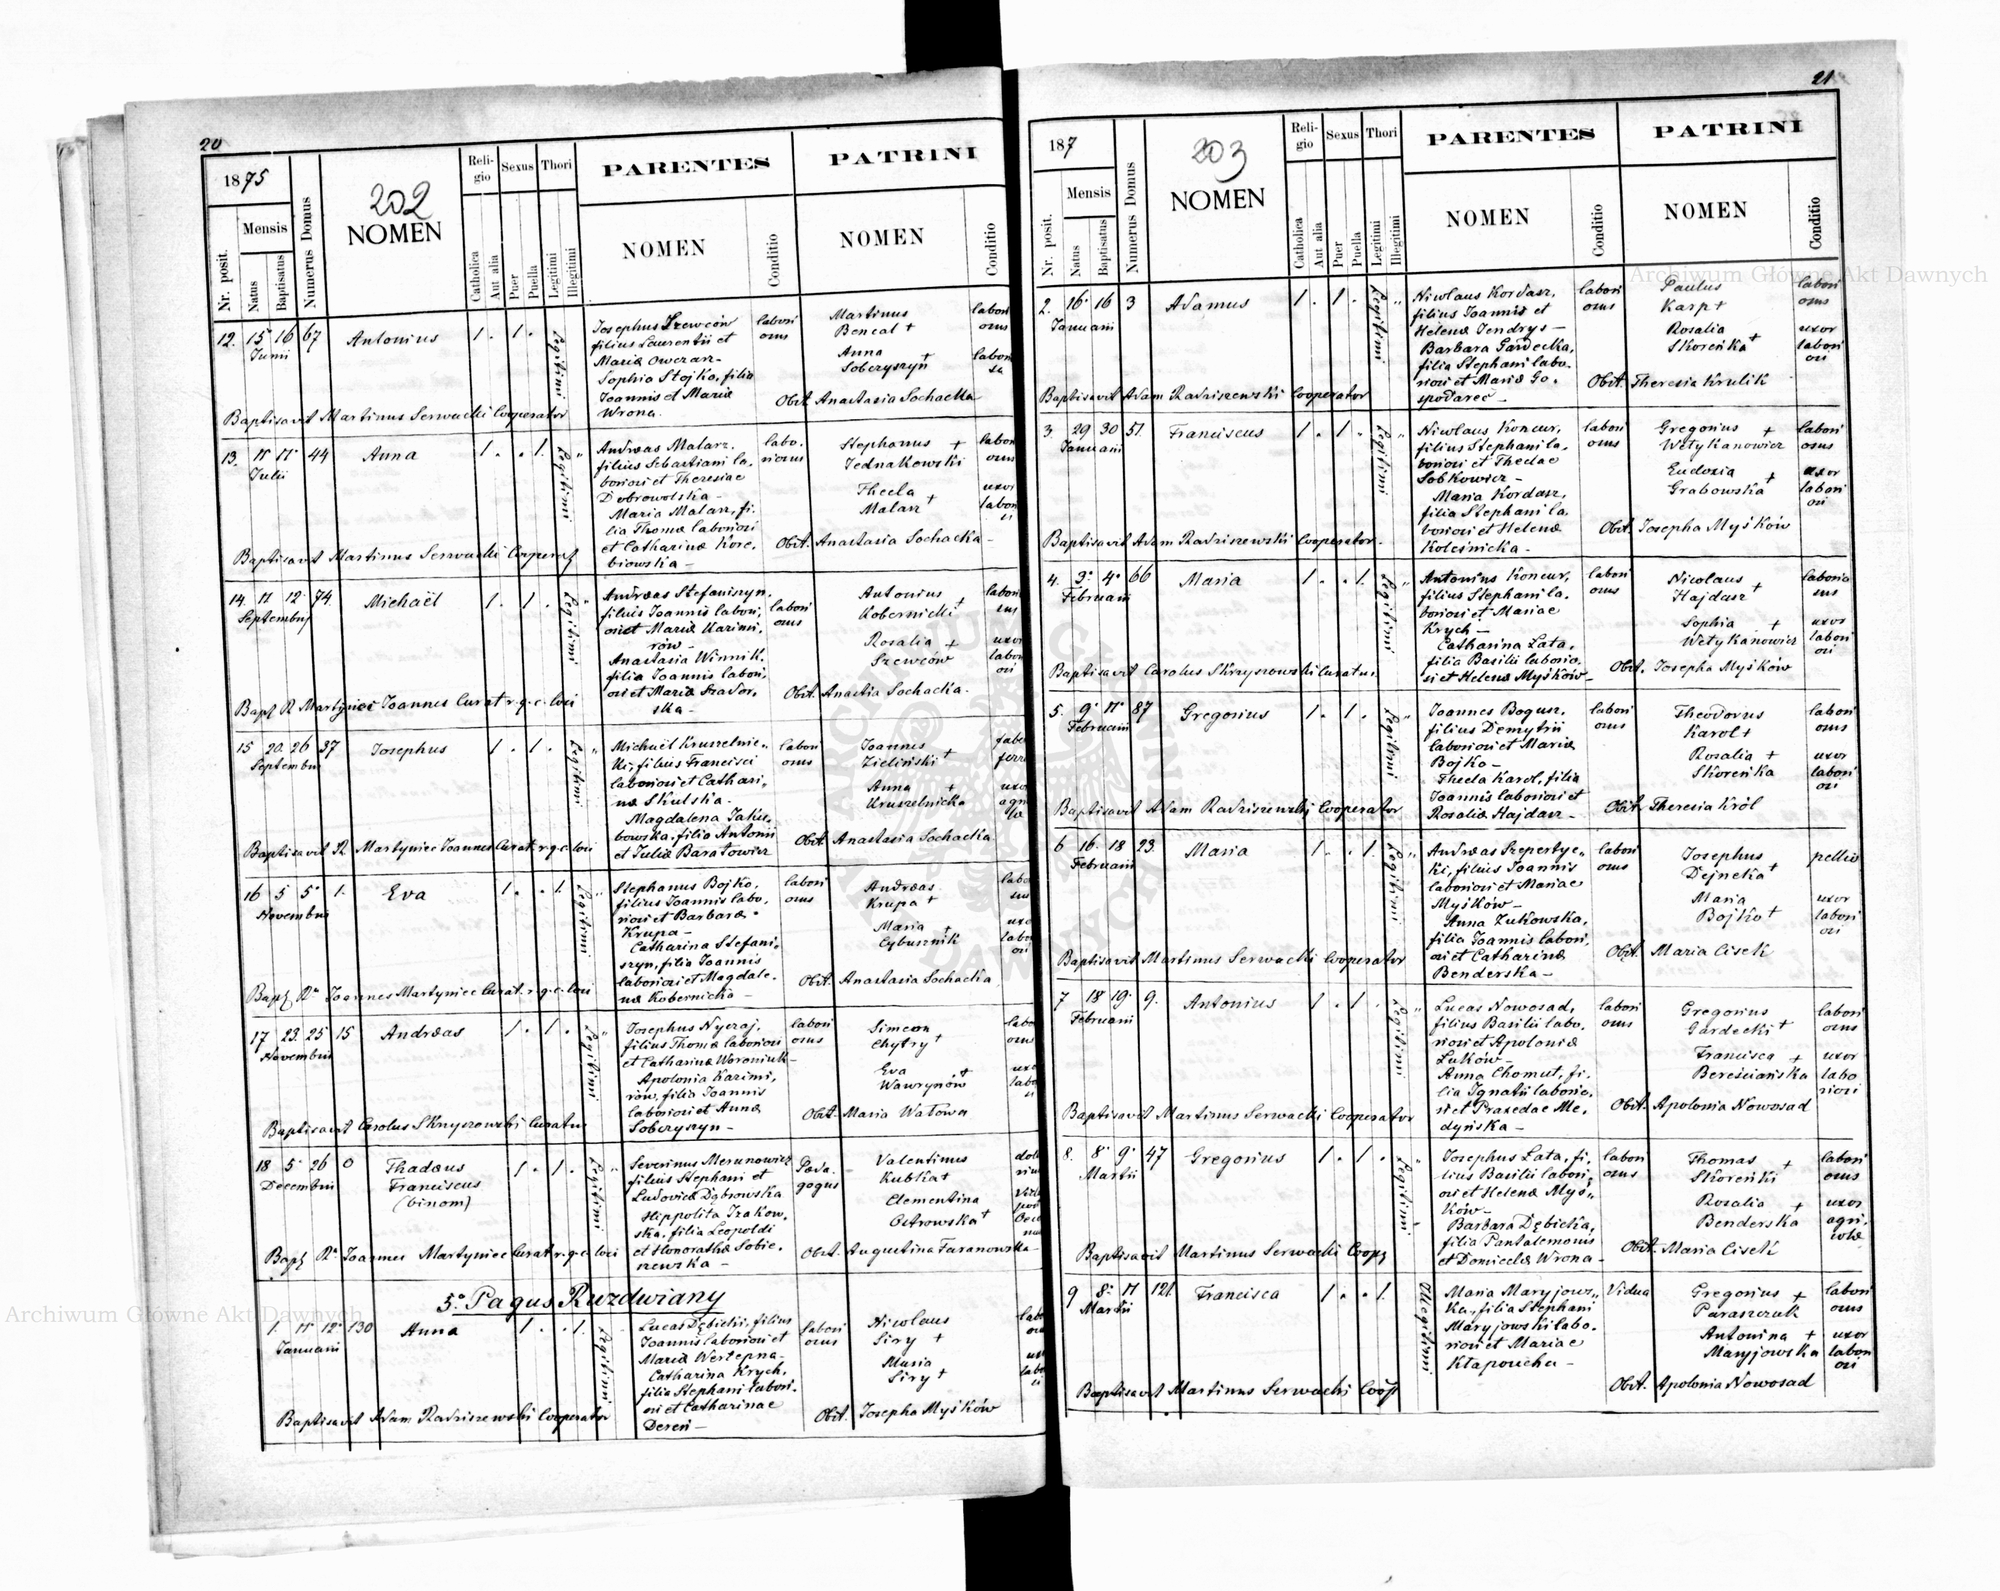 20
1875
Mensis
Nr. posit.
Natus
Baptisatus
Numerus Domus
202
NOMEN
Religio
Catholica
Aut alia
Sexus
Puer
Puella
Thori
Legitimi
Illegitimi
PARENTES
NOMEN
Conditio
PATRINI
NOMEN
Conditio
12. 15 16 67 Antonius 1. 1. Legitimi
Junii
Josephus Szewców
filius Laurentii et
Mariæ Owczarz-
Sophia Stojko, filia
Joannis et Mariæ
Wrona.
labori
osus
Martinus
Bencal +
Anna +
Sobczyszyn
labori
osus
Baptisavit Martinus Serwacki Cooperator
Obst. Anastasia Sochacka
13. 11 11 44 Anna 1. . 1. Legitimi
Julii
Andreas Malarz.
filius Sebastiani la.
boriosi et Theresiae
Dobrowolska -
Maria Malarz, fi.
lia Thomæ laboriosi
et Catharinæ Kore.
biowska -
labo.
riosus
Stephanus +
Jednakowski
Thecla
Malarz +
uxor
Baptisavit Martinus Serwacki Cooperat
Obst. Anastasia Sochacka -
14. 11 12 74. Michaël 1. 1. Legitimi
Septembris
Andreas Stefaniszyn,
filius Joannis labori,
osi et Mariæ Karimi,
rów -
Anastasia Winnik.
filia Joannis labori,
osi et Mariæ Szador,
ska -
labori
osus
Antonius
Kobernicki +
Rosalia +
Szewców
uxor
labori
osi
Bapt R Martyniec Joannes Curat r. g. c. loci
Obst. Anastia Sochacka.
15 20. 26 37 Josephus 1. 1. Legitimi
Septembris
Michaël Kruszelnic,
ki, filius Francisci
laboriosi et Cathari,
næ Skulska.
Magdalena Jaku,
bowska, filia Antonii
et Juliæ Baratowicz
labori
osus
Joannes
Zieliński +
Anna +
Kruszelnicka
Baptisavit R. Martyniec Joannes Curat. r. g. c. loci
Obst. Anastasia Sochacka
16 5 5 1. Eva 1. . 1. Legitimi
Novembris
Stephanus Bojko,
filius Joannis labo,
riosi et Barbaræ
Krupa -
Catharina Stefani,
szyn, filia Joannis
laboriosi et Magdale.
næ Kobernicka -
labori
osus
Andreas
Krupa +
Maria +
Cybusznik
Bapt Rs Joannes Martyniec Curat. r. g. c. loci
Obst. Anastasia Sochacka
17 23. 25 15 Andreas 1. 1. Legitimi
Novembris
Josephus Nyczaj,
filius Thomæ laboriosi
et Catharinæ Woroniuk -
Apolonia Karimi,
rów, filia Joannis
laboriosi et Annæ
Sobczyszyn -
labori
osus
Simeon
Chytry +
Eva +
Wawrynów
Baptisavit Carolus Skryszowski Curatus
Obst. Maria Watowa
18 5 26 0 Thadæus 1. 1. Legitimi
Decembris Franciscus
(binom)
Severinus Merunowicz
filius Stephani et
Ludovicæ Dąbrowska
Hippolita Izakow,
ska, filia Leopoldi
et Honorathæ Sobie,
szewska -
Pæda.
gogus
Valentinus
Kubka +
Clementina
Ostrowska +
Bapt Rs Joannes Martyniec Curat r. g. c. loci
Obst. Augustina Taranowska -
5o. Pagus Ruzdwiany
1. 11 12 130 Anna 1. . 1. Legitimi
Januarii
Lucas Dębicki, filius
Joannis laboriosi et
Mariæ Wertepna -
Catharina Krych,
filia Stephani labori.
osi et Catharinae
Dereń -
labori
osus
Nicolaus
Siry +
Maria
Siry +
Baptisavit Adam Radziszewski Cooperator
Obst. Josepha Myśków
21
187
Mensis
Nr. posit.
Natus
Baptisatus
Numerus Domus
203
NOMEN
Religio
Catholica
Aut alia
Sexus
Puer
Puella
Thori
Legitimi
Illegitimi
PARENTES
NOMEN
Conditio
PATRINI
NOMEN
Conditio
2. 16 16 3 Adamus 1. 1. Legitimi
Januarii
Nicolaus Kordasz,
filius Joannis et
Helenæ Jendrys -
Barbara Gardecka,
filia Stephani labo.
riosi et Mariæ Go.
spodarec -
labori
osus
Paulus
Karp +
Rosalia
Skoreńka +
labori
osus
uxor
labori
osi
Baptisavit Adam Radziszewski Cooperator
Obst. Theresia Krulik
3. 29 30 51. Franciscus 1. 1. Legitimi
Januarii
Nicolaus Koncur,
filius Stephani la.
boriosi et Theclae
Sobkowicz -
Maria Kordasz,
filia Stephani la.
boriosi et Helenæ
Koleśnicka -
labori
osus
Gregorius +
Wetykanowicz
Eudoxia +
Grabowska
labori
osus
uxor
labori
osi
Baptisavit Adam Radziszewski Cooperator.
Obst. Josepha Myśków
4. 3. 4. 66 Maria 1. . 1. Legitimi
Februarii
Antonius Koncur,
filius Stephani la.
boriosi et Mariae
Krych -
Catharina Lata,
filia Basilii laborio.
si et Helenæ Myśków -
labori
osus
Nicolaus
Hajdasz +
Sophia +
Wetykanowicz
laborio
sus
uxor
labori
osi
Baptisavit Carolus Skryszowski Curatus
Obst. Josepha Myśków
5. 9. 11. 87 Gregorius 1. 1. Legitimi
Februarii
Joannes Bogusz,
filius Demytrii
laboriosi et Mariæ
Bojko -
Thecla Karol, filia
Joannis laboriosi et
Rosaliæ Hajdasz -
labori
osus
Theodorus
Karol +
Rosalia +
Skoreńka
labori
osus
uxor
labori
osi
Baptisavit Adam Radziszewski Cooperator
Obst. Theresia Król
6 16. 18 23. Maria 1. . 1. Legitimi
Februarii
Andreas Szepertyc,
ki, filius Joannis
laboriosi et Mariae
Myśków -
Anna Zukowska,
filia Joannis labori,
osi et Catharinæ
Benderska -
labori
osus
Josephus
Dejneka +
Maria
Bojko +
pellio
uxor
labori
osi
Baptisavit Martinus Serwacki Cooperator
Obst. Maria Cisek
7 18 19. 9. Antonius 1. 1. Legitimi
Februarii
Lucas Nowosad,
filius Basilii labo,
riosi et Apoloniæ
Luków -
Anna Chomut, fi.
lia Ignatii laborio.
si et Praxedae Me.
dyńska -
labori
osus
Gregorius
Gardecki +
Francisca +
Bereściańska
labori
osus
uxor
labo
riosi
Baptisavit Martinus Serwacki Cooperator
Obst. Apolonia Nowosad
8. 8. 9. 47 Gregorius 1. 1. Legitimi
Martii
Josephus Lata, fi.
lius Basilii labori,
osi et Helenæ Myś,
ków -
Barbara Dębicka,
filia Pantalemonis
et Domicelæ Wrona -
labori
osus
Thomas +
Skoreński
Rosalia +
Benderska
labori
osus
uxor
agri,
colæ
Baptisavit Martinus Serwacki Coop
Obst. Maria Cisek
9 8. 11 121. Francisca 1. . 1. Illegitimi
Martii
Maria Maryjows,
ka, filia Stephani
Maryjowski labo.
riosi et Mariae
Kłapoucha -
Vidua
Gregorius +
Paraszczuk
Antonina +
Maryjowska
labori
osus
uxor
labori
osi
Baptisavit Martinus Serwacki Coop
Obst. Apolonia Nowosad
Archiwum Główne Akt Dawnych
Archiwum Główne Akt Dawnych
ARCHIWUM GŁÓWNE AKT DAWNYCH